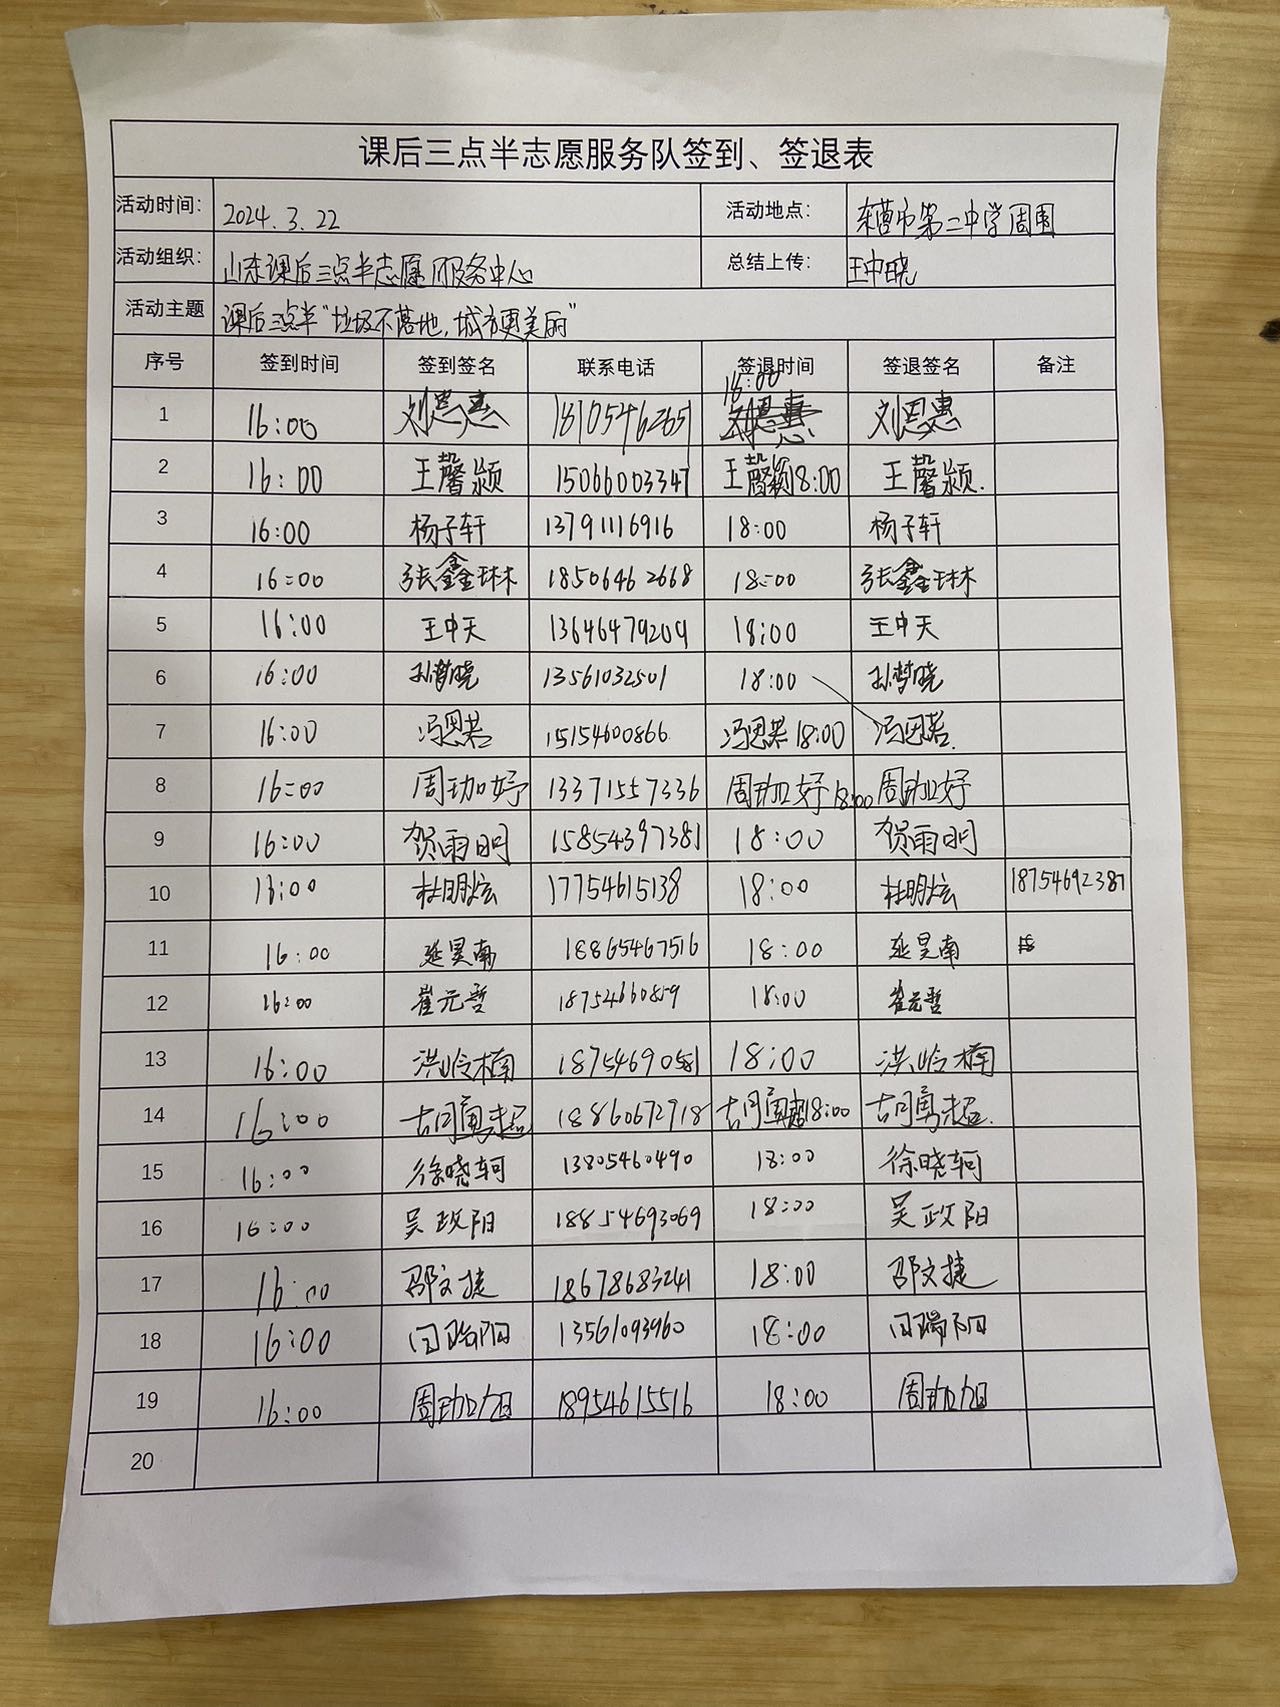 课后三点半志愿服务队签到、签退表
活动时间: 2024.3.22 活动地点: 东营市第二中学周围
活动组织: 山东课后三点半志愿服务中心 总结上传: 王中晓
活动主题 课后三点半“垃圾不落地,城市更美丽”
序号 签到时间 签到签名 联系电话 签退时间 签退签名 备注
18:00
1 16:00 刘恩惠 刘恩惠 刘恩惠
2 16:00 王馨颍 15066003347 王馨颍18:00 王馨颍.
3 16:00 杨子轩 13791116916 18:00 杨子轩
4 16:00 张鑫琳 18506462668 18:00 张鑫琳
5 16:00 王中天 13646479209 18:00 王中天
6 16:00 孙梦晓 13561032501 18:00 孙梦晓
7 16:00 冯恩若 15154600866 冯恩若 18:00 冯恩若.
8 16:00 周珈妤 13371557336 周珈妤 18:00 周珈妤
9 16:00 贺雨明 15854397381 18:00 贺雨明
10 16:00 杜明炫 17754615138 18:00 杜明炫 18754692387
11 16:00 延昊南 18865467516 18:00 延昊南
12 16:00 崔元哲 18754660859 18:00 崔元哲
13 16:00 洪岭楠 18754690581 18:00 洪岭楠
14 16:00 古同勇超 18860672918 古同勇超18:00 古同勇超.
15 16:00 徐晓轲 13805460490 18:00 徐晓轲
16 16:00 吴政阳 18854693069 18:00 吴政阳
17 16:00 邵文捷 18678683241 18:00 邵文捷
18 16:00 闫瑞阳 13561093960 18:00 闫瑞阳
19 16:00 周珈旭 18954615516 18:00 周珈旭
20